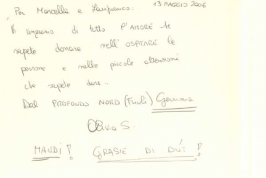 Per Marcella e Gianfranco. 13 MAGGIO 2006
Vi ringrazio di tutto l'AMORE che
sapete donare nell'OSPITARE le
persone e nelle piccole attenzioni
che sapete dare...
Dal PROFONDO NORD (Friuli)
S.
MANDI !! GRASIE DI DÛT !!